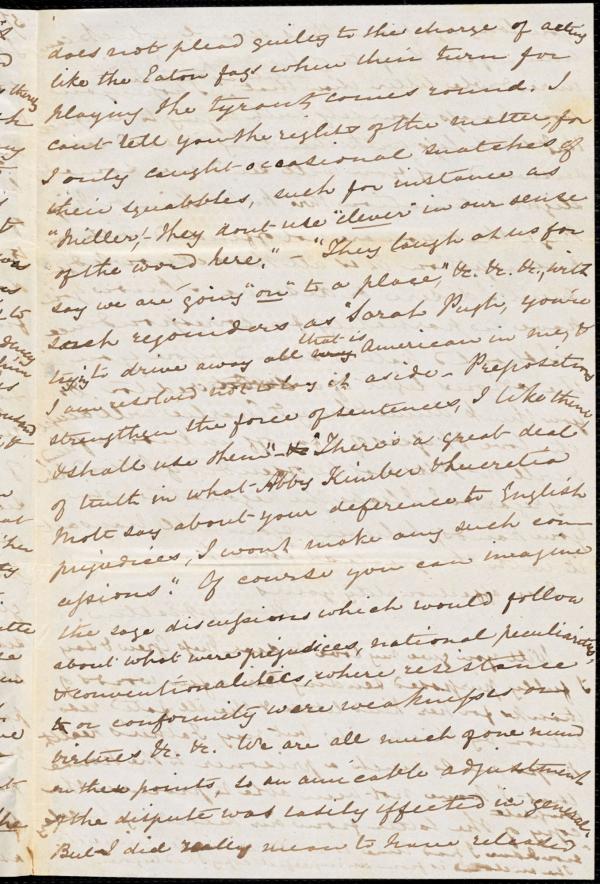 does not plead guilty to the charge of acting
like the Eaton fags when their turn for
playing the tyrant, comes round. I
can't tell you the rights of the matter, for
I only caught occasional snatches of
their squabbles, such for instance as
"Miller,"- they dont use "clever" in our sense
of the word here." - "They laugh at us for
say we are going "on" to a place," &c. &c. &c., with
such rejoinders as "Sarah Pugh, you're
trying to drive away all that is American in me, &
I am resolved not to lay it aside - Prepositions
strengthen the force of sentences, I like them,
& shall use them" - "There's a great deal
of truth in what Abby Kimber & Lucretia
Mott say about your deference to English
prejudices, I won't make any such con-
cessions." Of course you can imagine
the sage discussions which would follow
about what were prejudices, national peculiarities,
& conventionalities, where resistance
or conformity were weaknesses or
virtues &c. &c. We are all much of one mind
on these points, so an amicable adjustment
of the dispute was easily effected in general.
But I did really mean to have released